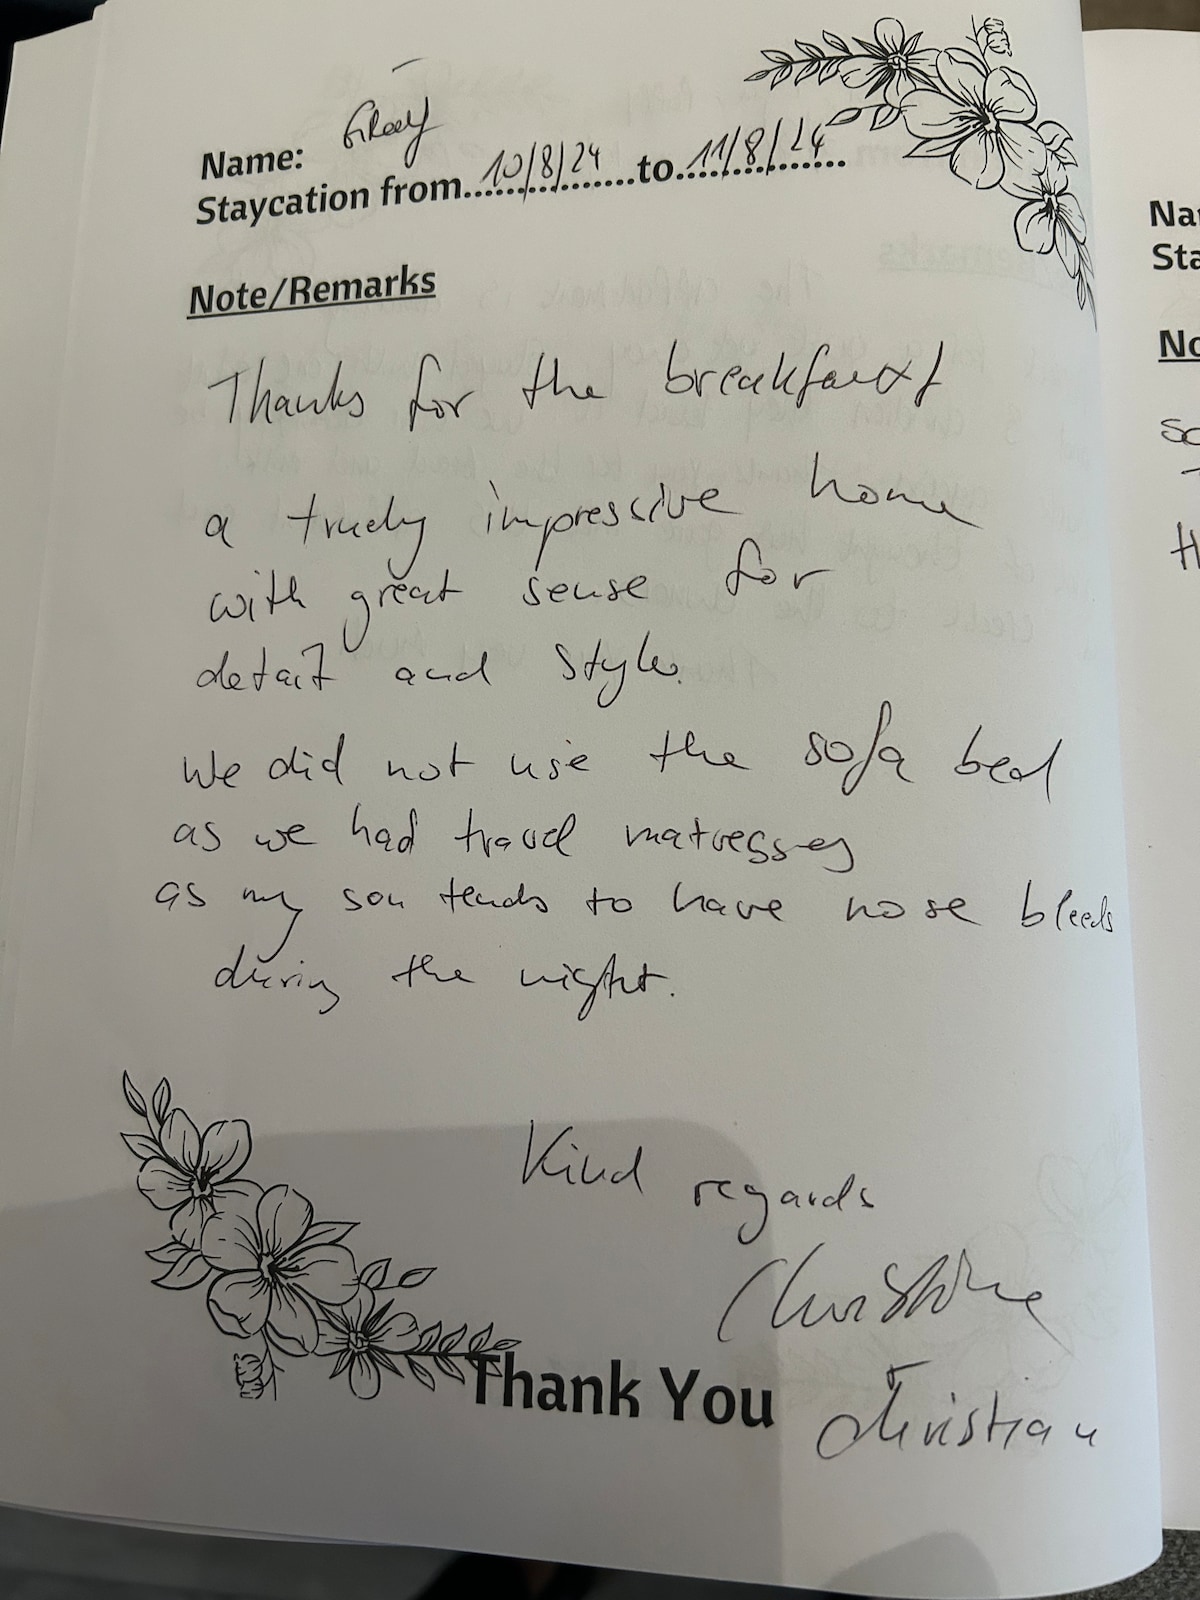 Name:
Staycation from 10/8/24 to 11/8/24
Note/Remarks
Thanks for the breakfast
a truely impressive home
with great sense for
detail and style.
We did not use the sofa bed
as we had travel matresses
as my son tends to have nose bleeds
during the night.
Kind regards
Christine
Christian
Thank You
Na
Sta
No
so